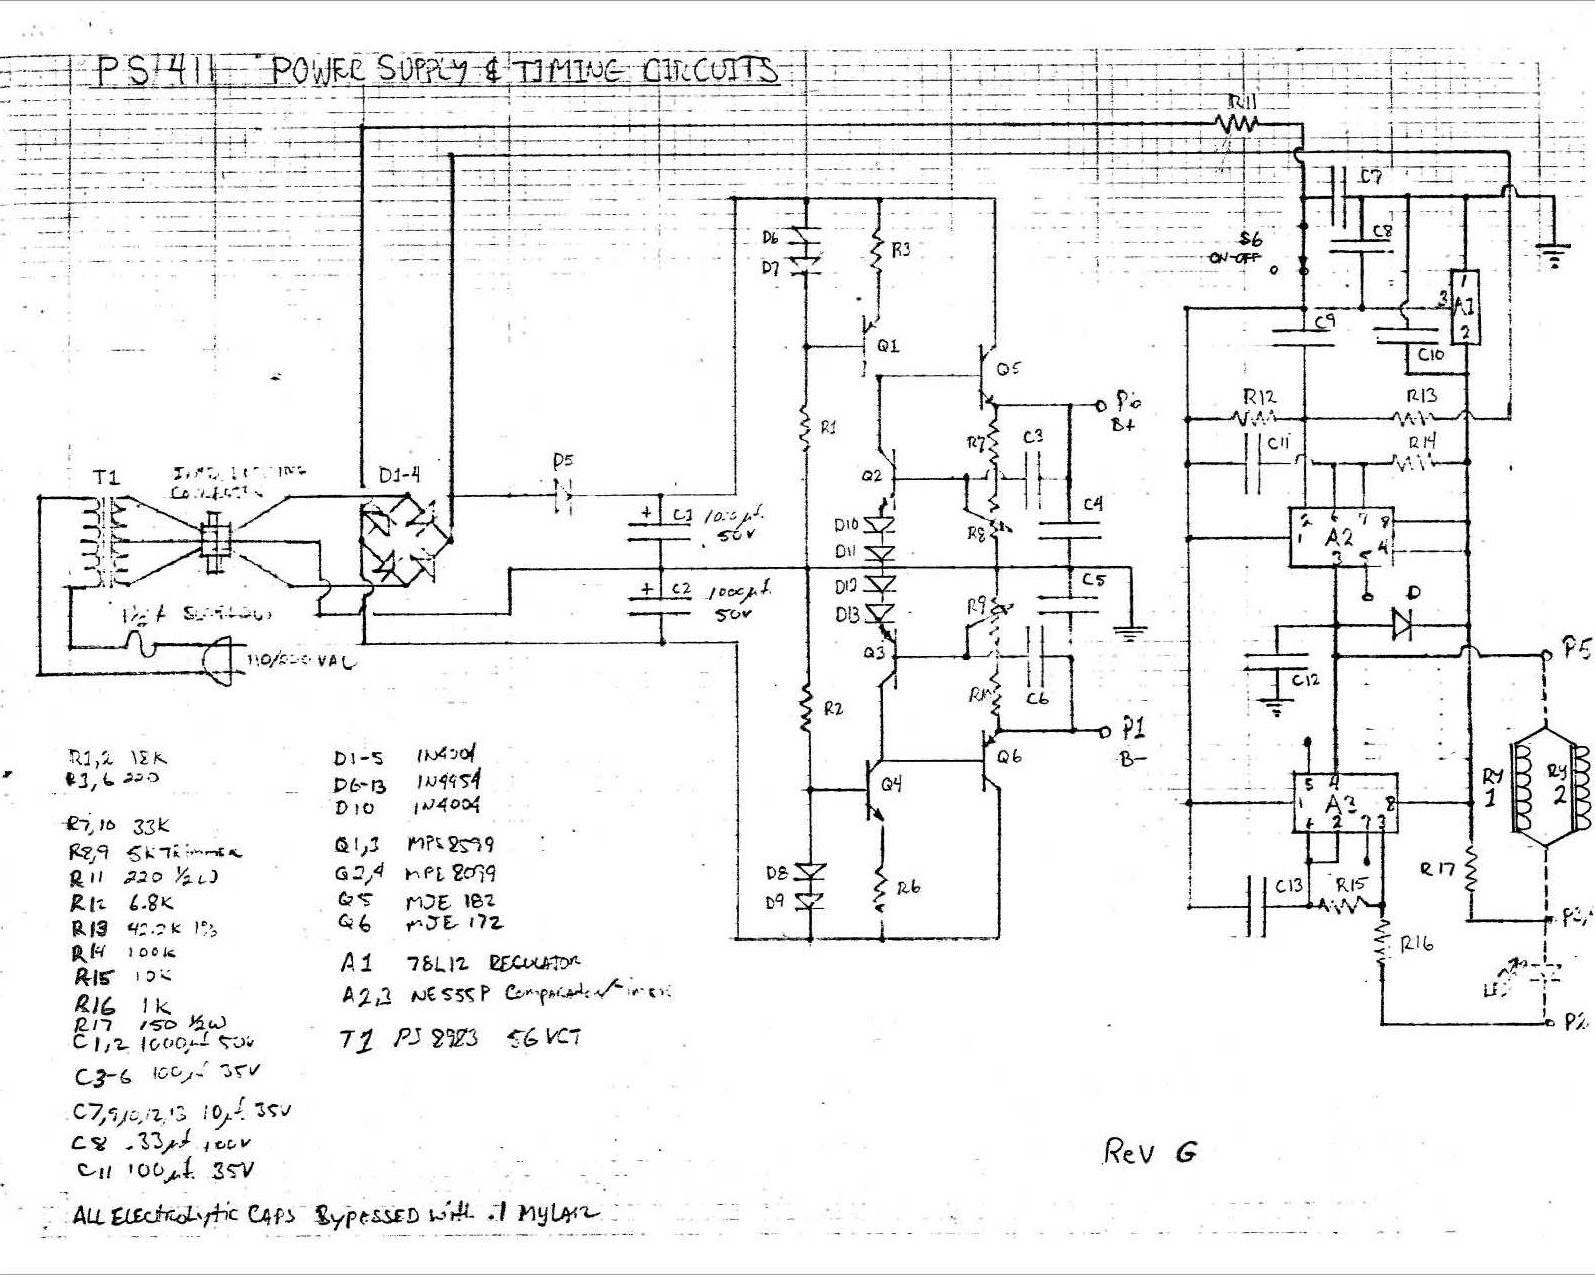 PS 411 POWER SUPPLY & TIMING CIRCUITS
R11
C7
S6
ON-OFF
C8
D6
D7
R3
1
3
A1
2
Q1
C9
C10
Q5
P6
B+
R12
R13
R1
R7
C3
C11
R14
T1
CONNECTOR
D1-4
D5
Q2
+
C1
1000µf.
50V
D10
D11
R8
C4
2
6
7
8
1
A2
4
3
5
+
C2
1000µf.
50V
D12
D13
R9
C5
D
Q3
110/220 VAC
C6
C12
P5
R2
P1
B-
Q6
Q4
5
4
1
A3
8
2
7
3
RY
1
RY
2
D8
D9
R6
C13
R15
R17
R16
P2
R1,2 18K
R3,6 220
R7,10 33K
R8,9 5K TRIMMER
R11 220 ½W
R12 6.8K
R13 42.2K 1%
R14 100K
R15 10K
R16 1K
R17 150 ½W
C1,2 1000µf 50V
C3-6 100µf 35V
C7,9,10,12,13 10µf. 35V
C8 .33µf 100V
C11 100µf. 35V
D1-5 1N4004
D6-13 1N4454
D10 1N4004
Q1,3 MPS8599
Q2,4 MPS 8099
Q5 MJE 182
Q6 MJE 172
A1 78L12 REGULATOR
A2,3 NE555P
T1 PS 8983 56VCT
Rev G
ALL ELECTROLYTIC CAPS BYPASSED WITH .1 MYLAR